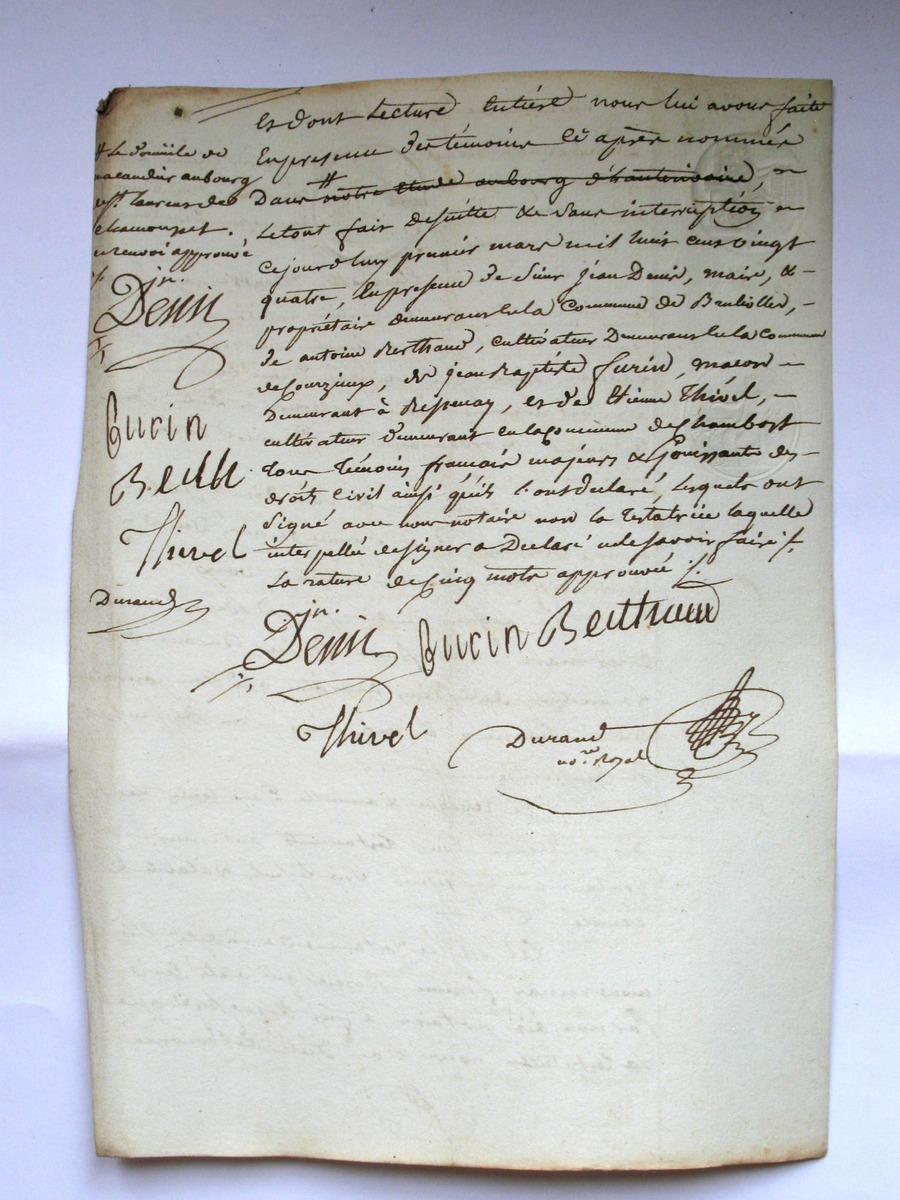 et dont lecture entiere nous lui avons faite
en presence des témoins ci après nommés
Dans # notre etude aubourg d'hauterivoire, =
Le tout fait de suitte & sans interruption =
Cejourd'huy premier mars mil huit cent vingt
quatre, En presence de Sieur Jean Denis, maire, &-
propriétaire demeurant en la Commune de Brullioles, -
de antoine Berthaud, cultivateur Demeurant en la commune
de Courzieux, de Jean Baptiste Gurin, macon -
Demeurant à Bessenay, et de Etienne Thivel, -
cultivateur demeurant en la commune de Chambost
tous témoins francais majeurs & Jouissants des-
droits Civil ainsi qu'ils l'ont declaré, lesquels ont
signé avec nous notaire non la testatrice laquelle
interpellée de signer a Declaré ne le savoir faire ./.
La rature de cinq mots approuvée ./.
# Le domicile de
aubourg
de st. laurent de
chamousset.
renvoi approuvé
./.
jn.
Denis
Gurin
Berth
Thivel
Durand
jn.
Denis Gurin Berthaud
Thivel
Durand
no.re Royal